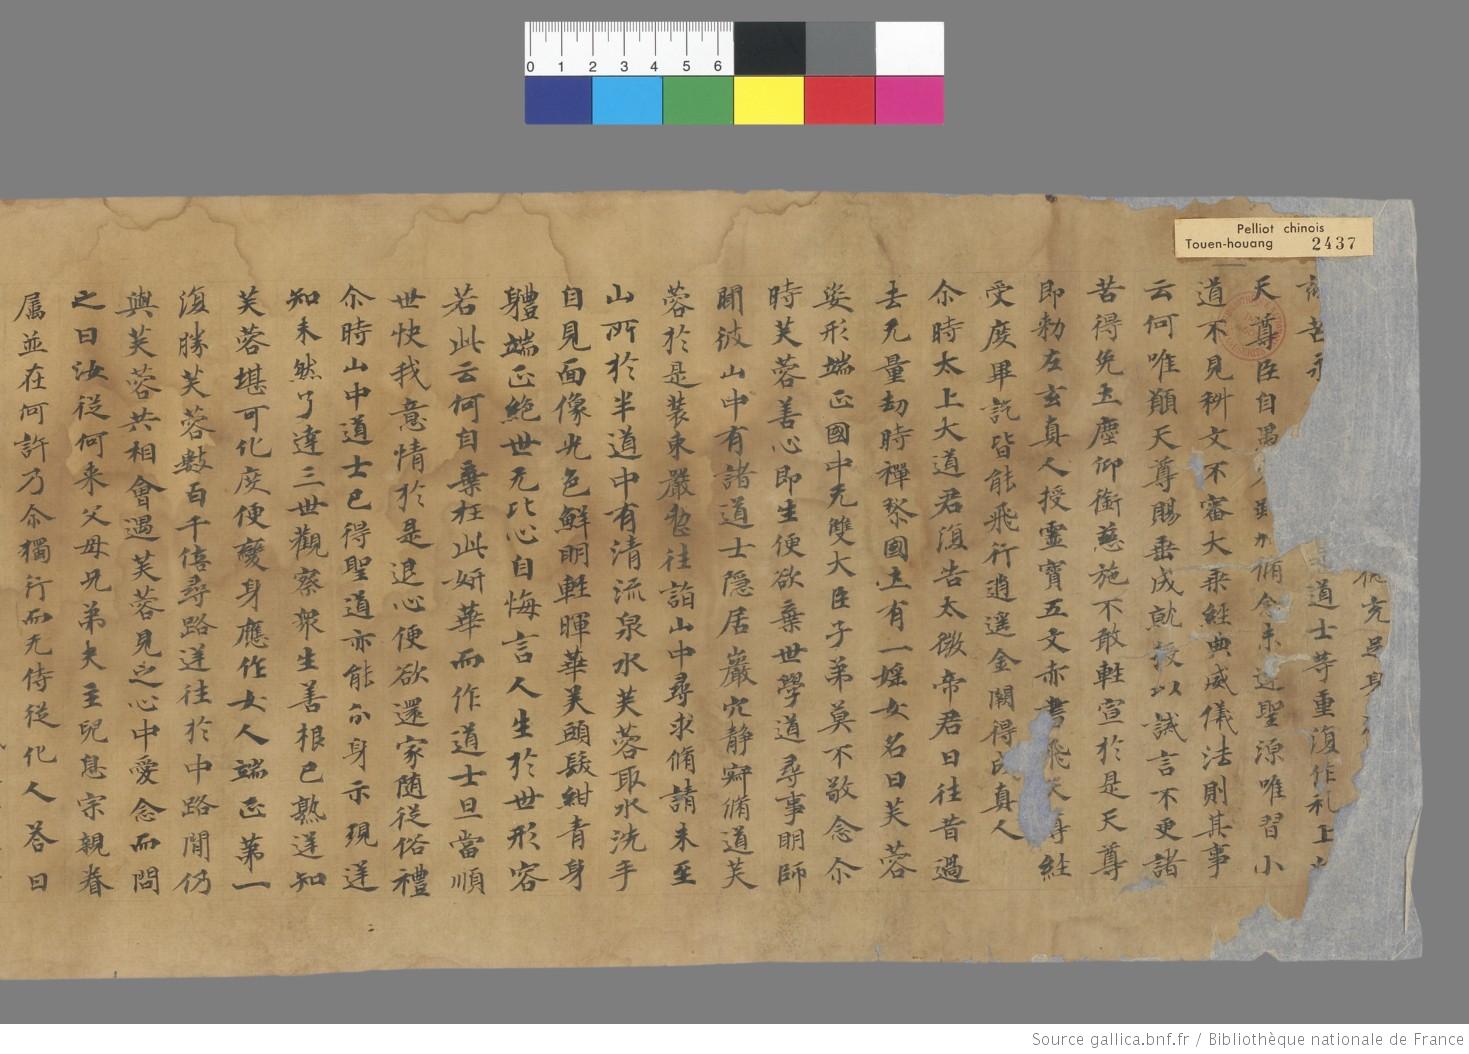 Pelliot chinois
Touen-houang 2437
0 1 2 3 4 5 6
道士等重復作礼上
天尊臣自 脩念未近聖源唯習小
道不見科文不審大乘經典威儀法則其事
云何唯願天尊賜垂成就授以誡言不更諸
苦得免土塵仰銜慈施不敢輕宣於是天尊
即勑左玄真人授靈寶五文赤書飛天 經
受度畢訖皆能飛行逍遥金闕得 真人
尒時太上大道君復告太微帝君曰往昔過
去无量劫時禪黎國土有一婬女名曰芙蓉
姿形端正國中无雙大臣子弟莫不敬念尒
時芙蓉善心即生便欲棄世學道尋事明師
聞彼山中有諸道士隱居巖穴静寂脩道芙
蓉於是裝束嚴整往詣山中尋求脩請未至
山所於半道中有清流泉水芙蓉取水洗手
自見面像光色鮮明輕暉華美頭髮紺青身
體端正絶世无比心自悔言人生於世形容
若此云何自棄枉此妍華而作道士且當順
世快我意情於是退心便欲還家随從俗禮
尒時山中道士已得聖道亦能分身示現逆
知未然了達三世觀察衆生善根已熟逆知
芙蓉堪可化度便變身應作女人端正第一
復勝芙蓉數百千倍尋路逆往於中路間仍
與芙蓉共相會遇芙蓉見之心中愛念而問
之曰汝從何来父母兄弟夫主兒息宗親眷
属並在何許乃尒獨行而无侍從化人荅曰
Source gallica.bnf.fr / Bibliothèque nationale de France